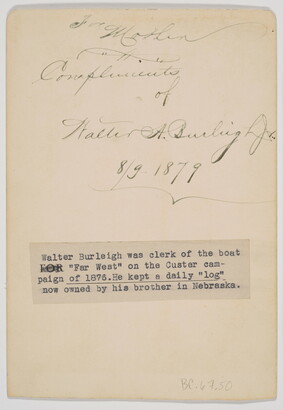 For Mother
"
Compliments
of
Walter A. Burleigh Jr.
8/9. 1879
Walter Burleigh was clerk of the boat
"Far West" on the Custer cam-
paign of 1876.He kept a daily "log"
now owned by his brother in Nebraska.
BC.67.50